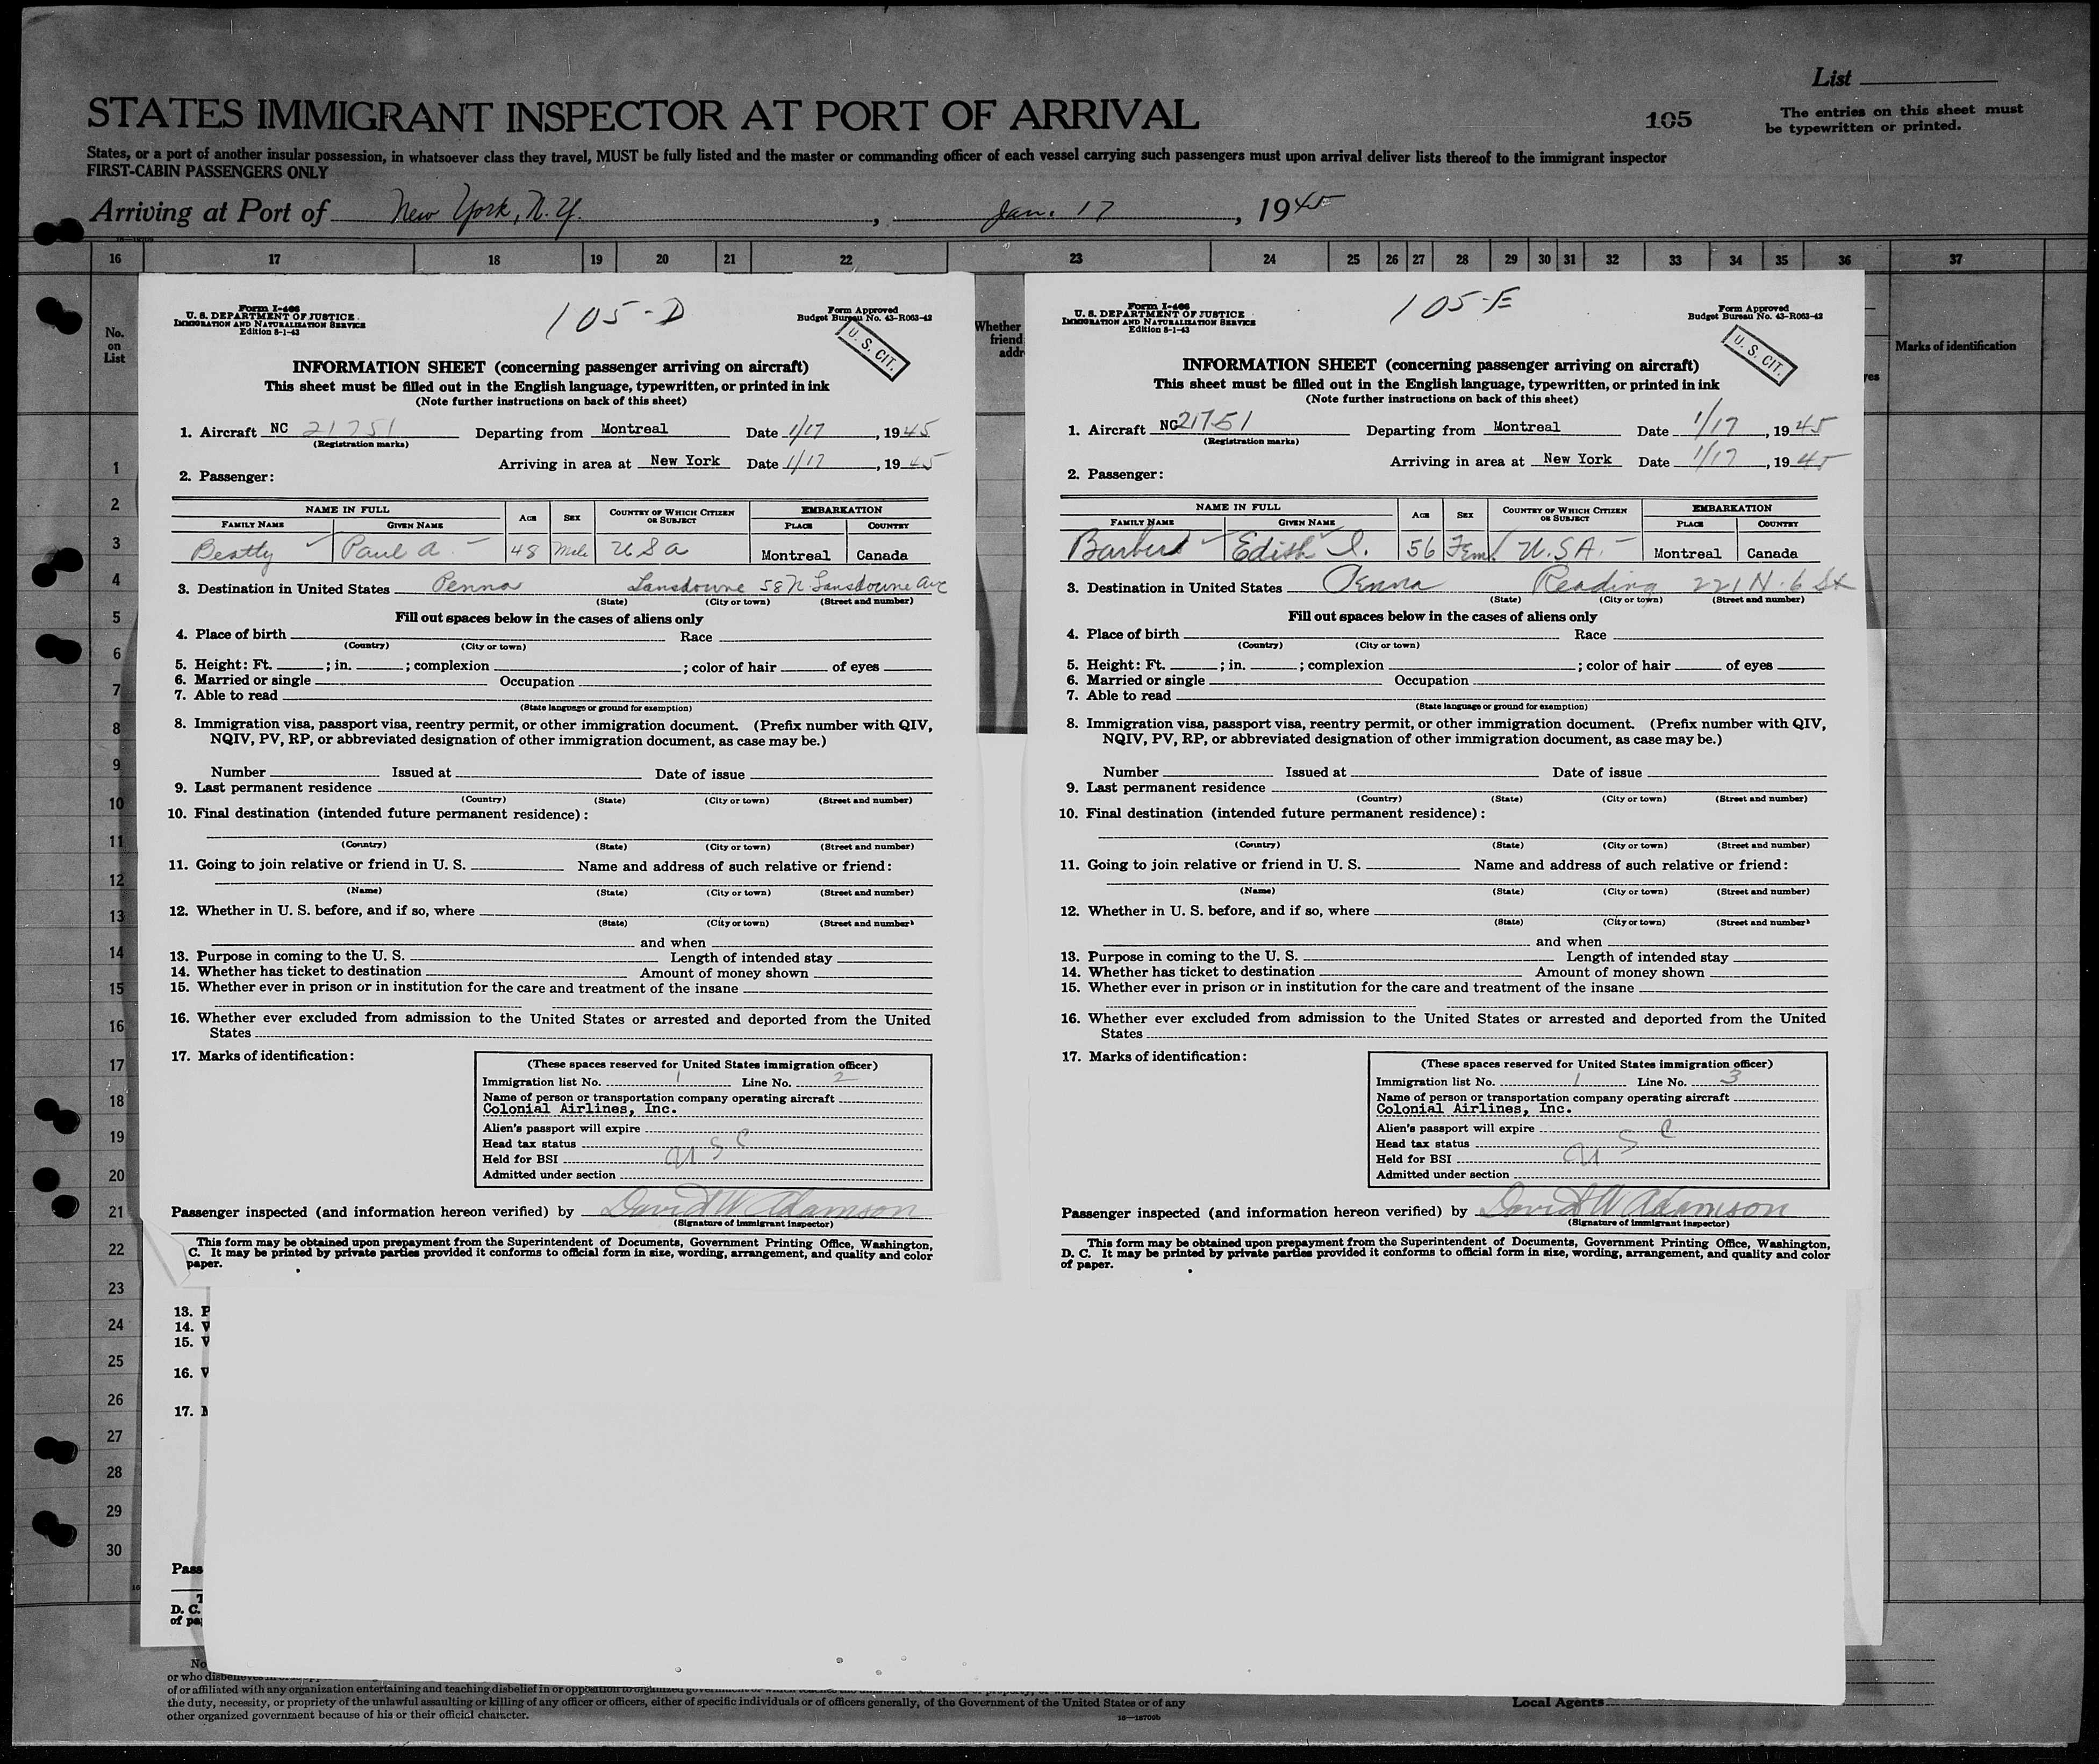 List
STATES IMMIGRANT INSPECTOR AT PORT OF ARRIVAL
105
The entries on this sheet must
be typewritten or printed.
States, or a port of another insular possession, in whatsoever class they travel, MUST be fully listed and the master or commanding officer of each vessel carrying such passengers must upon arrival deliver lists thereof to the immigrant inspector
FIRST-CABIN PASSENGERS ONLY
Arriving at Port of New York, N.Y., Jan. 17, 1945
16 17 18 19 20 21 22 23 24 25 26 27 28 29 30 31 32 33 34 35 36 37
No.
on
List
Whether
friend
addr
yes
Marks of identification
1
2
3
4
5
6
7
8
9
10
11
12
13
14
15
16
17
18
19
20
21
22
23
24
25
26
27
28
29
30
Form I-466
U. S. DEPARTMENT OF JUSTICE
IMMIGRATION AND NATURALIZATION SERVICE
Edition 5-1-43
105-D
Form Approved
Budget Bureau No. 43-R063-42
U. S. CIT.
INFORMATION SHEET (concerning passenger arriving on aircraft)
This sheet must be filled out in the English language, typewritten, or printed in ink
(Note further instructions on back of this sheet)
1. Aircraft NC 21751 Departing from Montreal Date 1/17, 1945
(Registration marks)
Arriving in area at New York Date 1/17, 1945
2. Passenger:
NAME IN FULL AGE SEX COUNTRY OF WHICH CITIZEN OR SUBJECT EMBARKATION
FAMILY NAME GIVEN NAME PLACE COUNTRY
Beatty Paul A. 48 Male USA Montreal Canada
3. Destination in United States Penna Lansdowne 58 N. Lansdowne Ave
(State) (City or town) (Street and number)
Fill out spaces below in the cases of aliens only
4. Place of birth Race
(Country) (City or town)
5. Height: Ft. ; in. ; complexion ; color of hair of eyes
6. Married or single Occupation
7. Able to read
(State language or ground for exemption)
8. Immigration visa, passport visa, reentry permit, or other immigration document. (Prefix number with QIV,
NQIV, PV, RP, or abbreviated designation of other immigration document, as case may be.)
Number Issued at Date of issue
9. Last permanent residence
(Country) (State) (City or town) (Street and number)
10. Final destination (intended future permanent residence):
(Country) (State) (City or town) (Street and number)
11. Going to join relative or friend in U. S. Name and address of such relative or friend:
(Name) (State) (City or town) (Street and number)
12. Whether in U. S. before, and if so, where
(State) (City or town) (Street and number)
and when
13. Purpose in coming to the U. S. Length of intended stay
14. Whether has ticket to destination Amount of money shown
15. Whether ever in prison or in institution for the care and treatment of the insane
16. Whether ever excluded from admission to the United States or arrested and deported from the United
States
17. Marks of identification:
(These spaces reserved for United States immigration officer)
Immigration list No. 1 Line No. 2
Name of person or transportation company operating aircraft
Colonial Airlines, Inc.
Alien's passport will expire
Head tax status
Held for BSI U S C
Admitted under section
Passenger inspected (and information hereon verified) by David W Adamson
(Signature of immigrant inspector)
This form may be obtained upon prepayment from the Superintendent of Documents, Government Printing Office, Washington,
C. It may be printed by private parties provided it conforms to official form in size, wording, arrangement, and quality and color
paper.
Form I-466
U. S. DEPARTMENT OF JUSTICE
IMMIGRATION AND NATURALIZATION SERVICE
Edition 5-1-43
105-E
Form Approved
Budget Bureau No. 43-R063-42
U. S. CIT.
INFORMATION SHEET (concerning passenger arriving on aircraft)
This sheet must be filled out in the English language, typewritten, or printed in ink
(Note further instructions on back of this sheet)
1. Aircraft NC 21751 Departing from Montreal Date 1/17, 1945
(Registration marks)
Arriving in area at New York Date 1/17, 1945
2. Passenger:
NAME IN FULL AGE SEX COUNTRY OF WHICH CITIZEN OR SUBJECT EMBARKATION
FAMILY NAME GIVEN NAME PLACE COUNTRY
Edith I. 56 Fem. U.S.A. Montreal Canada
3. Destination in United States Penna Reading 221 N. 6 St
(State) (City or town) (Street and number)
Fill out spaces below in the cases of aliens only
4. Place of birth Race
(Country) (City or town)
5. Height: Ft. ; in. ; complexion ; color of hair of eyes
6. Married or single Occupation
7. Able to read
(State language or ground for exemption)
8. Immigration visa, passport visa, reentry permit, or other immigration document. (Prefix number with QIV,
NQIV, PV, RP, or abbreviated designation of other immigration document, as case may be.)
Number Issued at Date of issue
9. Last permanent residence
(Country) (State) (City or town) (Street and number)
10. Final destination (intended future permanent residence):
(Country) (State) (City or town) (Street and number)
11. Going to join relative or friend in U. S. Name and address of such relative or friend:
(Name) (State) (City or town) (Street and number)
12. Whether in U. S. before, and if so, where
(State) (City or town) (Street and number)
and when
13. Purpose in coming to the U. S. Length of intended stay
14. Whether has ticket to destination Amount of money shown
15. Whether ever in prison or in institution for the care and treatment of the insane
16. Whether ever excluded from admission to the United States or arrested and deported from the United
States
17. Marks of identification:
(These spaces reserved for United States immigration officer)
Immigration list No. 1 Line No. 3
Name of person or transportation company operating aircraft
Colonial Airlines, Inc.
Alien's passport will expire
Head tax status
Held for BSI U S C
Admitted under section
Passenger inspected (and information hereon verified) by David W Adamson
(Signature of immigrant inspector)
This form may be obtained upon prepayment from the Superintendent of Documents, Government Printing Office, Washington,
D. C. It may be printed by private parties provided it conforms to official form in size, wording, arrangement, and quality and color
of paper.
13. P
14. W
15. W
16. W
17. M
Pass
T
D. C.
of pa
No
or who
of or affiliated with any organization entertaining and teaching disbelief in or opposition to organized
the duty, necessity, or propriety of the unlawful assaulting or killing of any officer or officers, either of specific individuals or of officers generally, of the Government of the United States or of any
other organized government because of his or their official character.
16—18709b
Local Agents